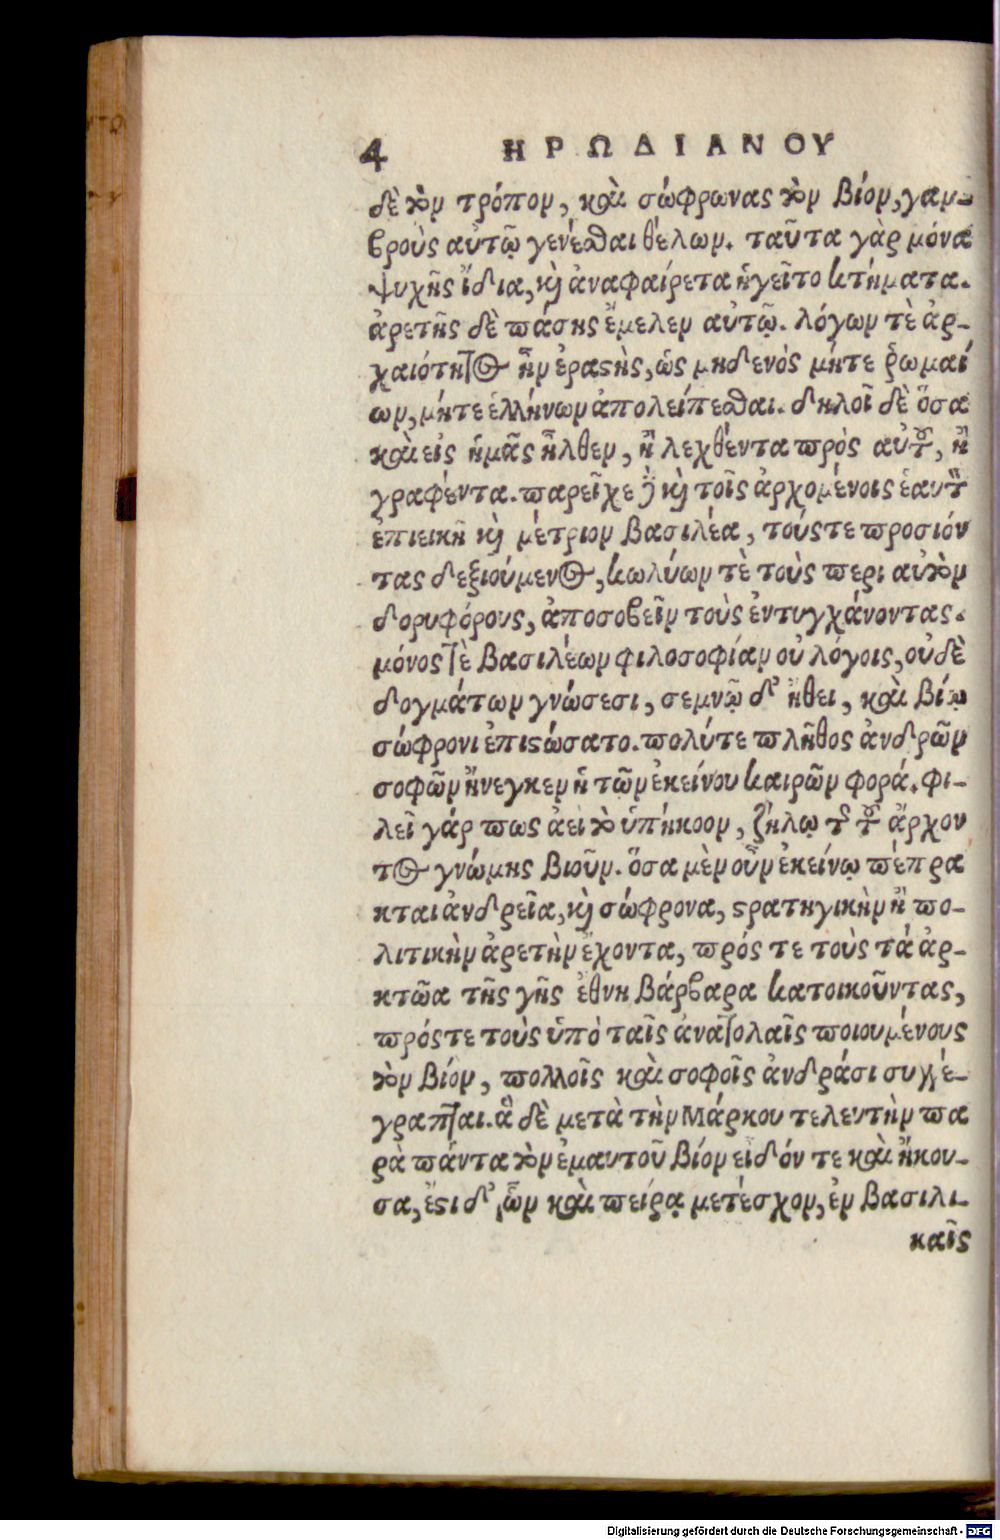 4 ΗΡΩΔΙΑΝΟΥ
δὲ τὸν τρόπον, καὶ σώφρωνας τὸν βίον, γαμ-
βροὺς αὐτῷ γενέσθαι θέλων. ταῦτα γὰρ μόνα
ψυχῆς ἴδια, κὶ ἀναφαίρετα ἡγεῖτο κτήματα.
ἀρετῆς δὲ πάσης ἔμελεν αὐτῷ. λόγων τὲ ἀρ-
χαιότητος ἦν ἐραστὴς, ὡς μηδενὸς μήτε ῥωμαί
ων, μήτε ἑλλήνων ἀπολείπεσθαι. δηλοῖ δὲ ὅσα
καὶ εἰς ἡμᾶς ἦλθεν, ἢ λεχθέντα πρὸς αὐτοῦ, ἢ
γραφέντα. παρεῖχε δὲ κὶ τοῖς ἀρχομένοις ἑαυτὸν
ἐπιεικῆ κὶ μέτριον βασιλέα, τούς τε προσιόν
τας δεξιούμενος, κωλύων τὲ τοὺς περι αὐτὸν
δορυφόρους, ἀποσοβεῖν τοὺς ἐντυγχάνοντας.
μόνος τὲ βασιλέων φιλοσοφίαν οὐ λόγοις, οὐδὲ
δογμάτων γνώσεσι, σεμνῷ δ' ἤθει, καὶ βίῳ
σώφρονι ἐπιστώσατο. πολύ τε πλῆθος ἀνδρῶν
σοφῶν ἤνεγκεν ἡ τῶν ἐκείνου καιρῶν φορά. φι-
λεῖ γάρ πως ἀεὶ τὸ ὑπήκοον, ζήλῳ τῆς τοῦ ἄρχον
τος γνώμης βιοῦν. ὅσα μὲν οὖν ἐκείνῳ πέπρα
κται ἀνδρεῖα, κὶ σώφρονα, στρατηγικὴν ἢ πο-
λιτικὴν ἀρετὴν ἔχοντα, πρός τε τοὺς τὰ ἀρ-
κτῶα τῆς γῆς ἔθνη βάρβαρα κατοικοῦντας,
πρός τε τοὺς ὑπὸ ταῖς ἀνατολαῖς ποιουμένους
τὸν βίον, πολλοῖς καὶ σοφοῖς ἀνδράσι συγγέ-
γραπται. ἃ δὲ μετὰ τὴν Μάρκου τελευτὴν πα
ρὰ πάντα τὸν ἐμαυτοῦ βίον εἶδόν τε καὶ ἤκου-
σα, ἔστι δ' ὧν καὶ πείρᾳ μετέσχον, ἐν βασιλι-
καῖς
Digitalisierung gefördert durch die Deutsche Forschungsgemeinschaft - DFG